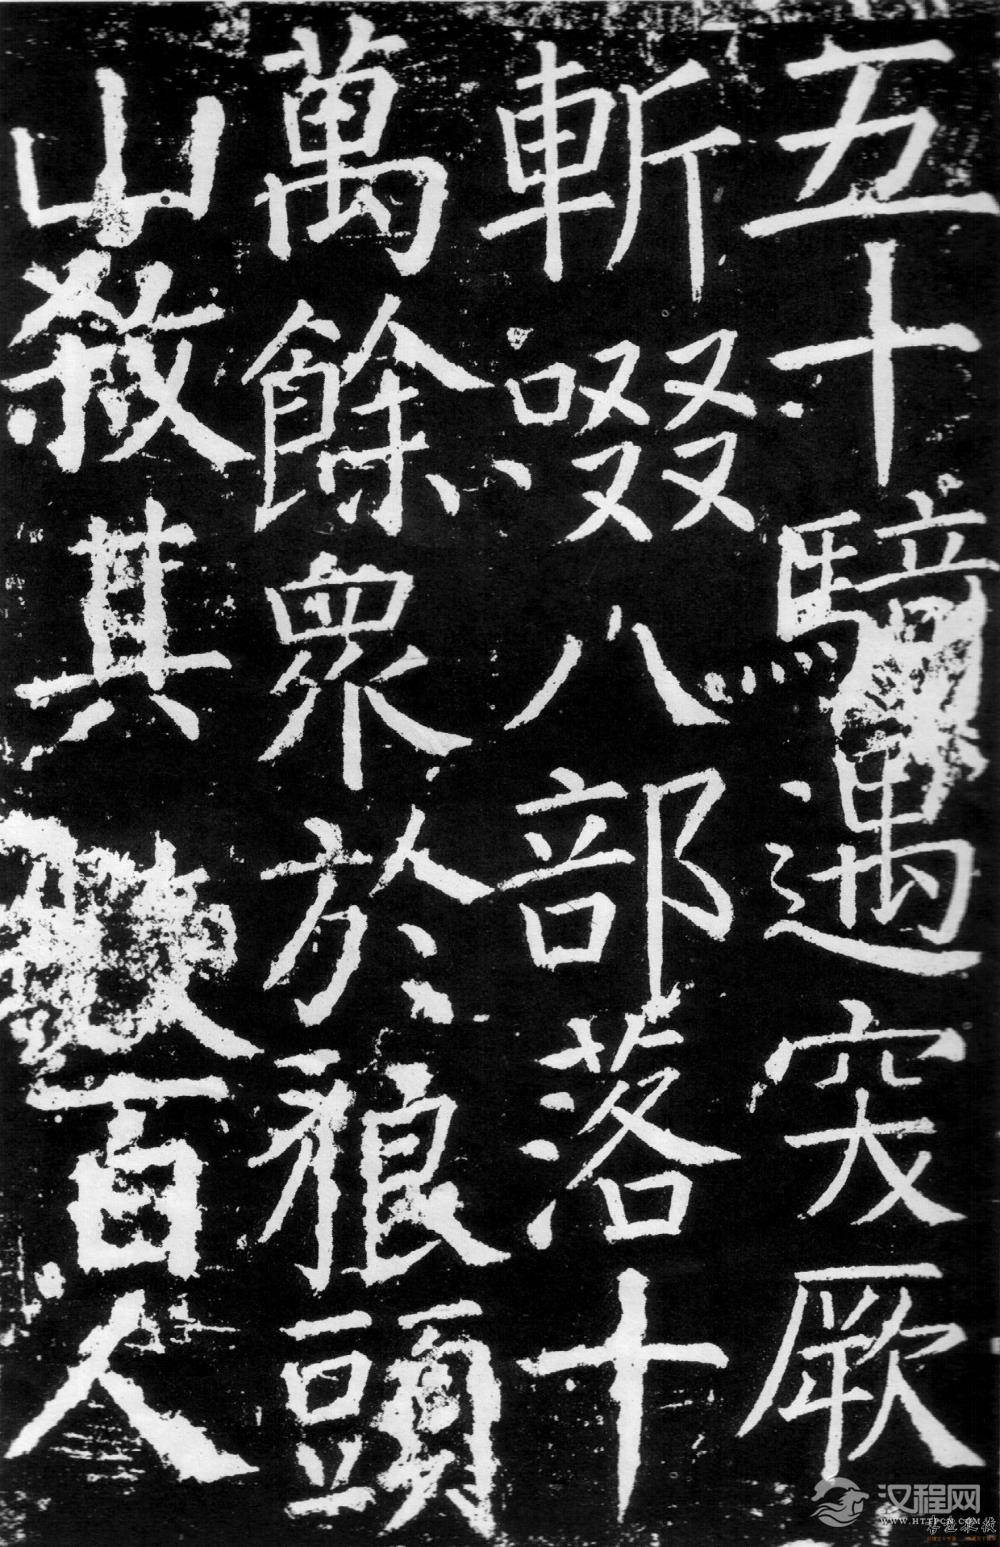 五十騎遇突厥
斬啜八部落十
萬餘眾於狼頭
山殺其數百人
汉程网
WWW.HTTPCN.COM